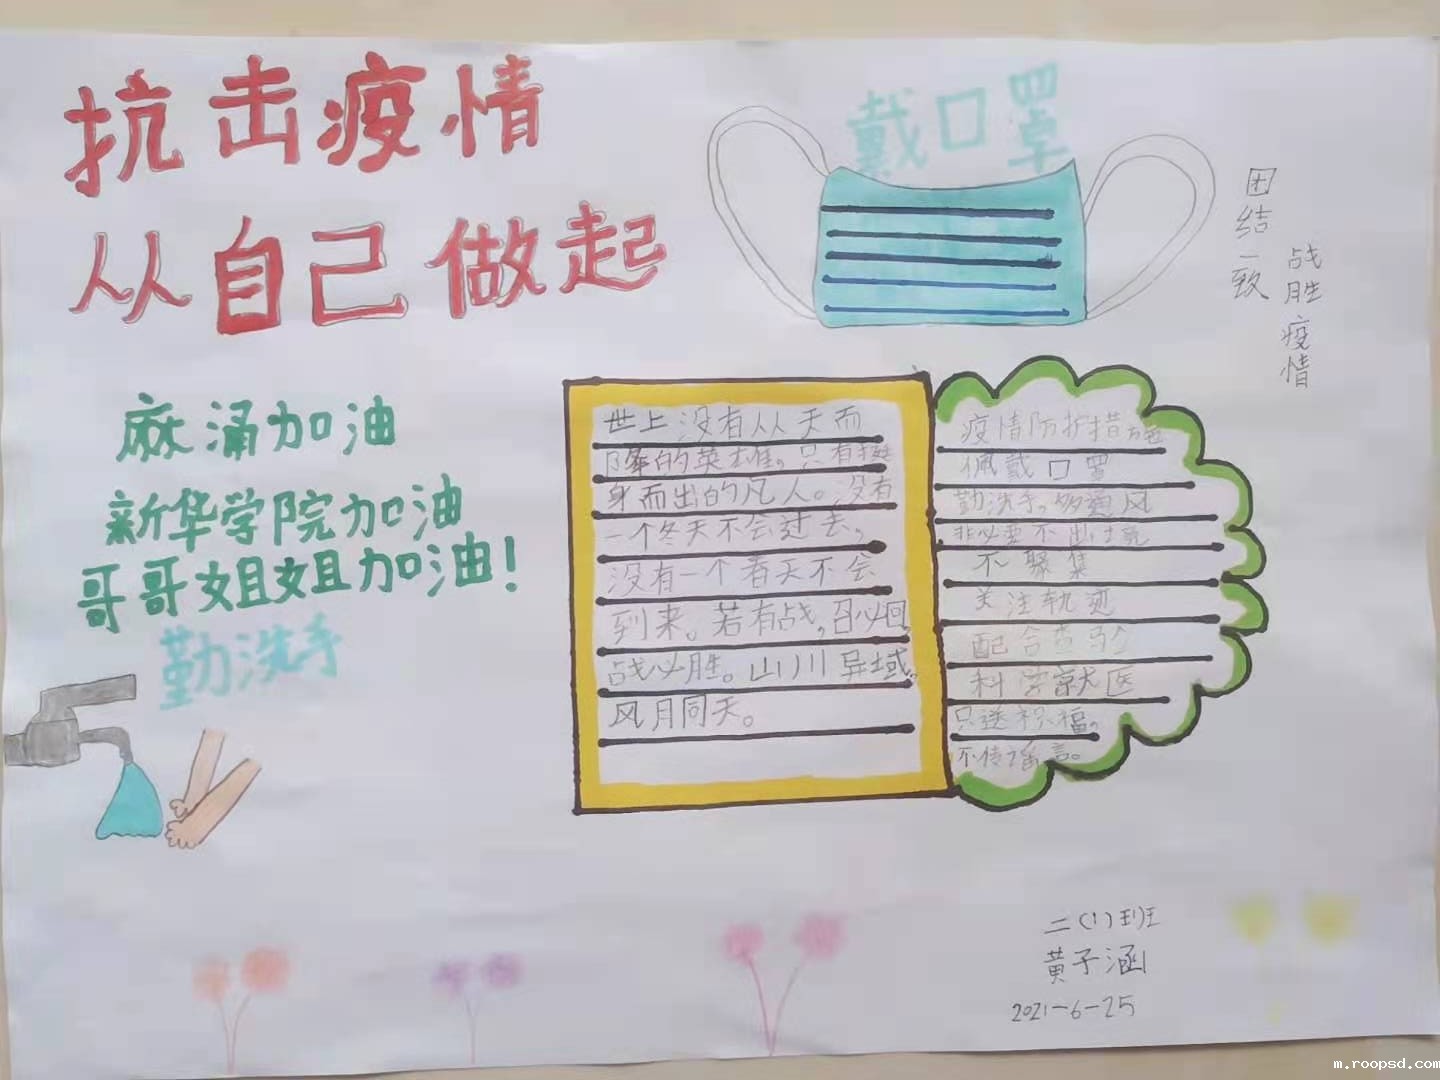 抗击疫情
从自己做起
戴口罩
团结一致
战胜疫情
麻涌加油
新华学院加油
哥哥姐姐加油！
勤洗手
世上没有从天而
降的英雄，只有挺
身而出的凡人。没有
一个冬天不会过去，
没有一个春天不会
到来。若有战，召必回，
战必胜。山川异域，
风月同天。
疫情防护措施
佩戴口罩
勤洗手，多通风
非必要不出境
不聚集
关注轨迹
配合查验
科学就医
只送祝福，
不传谣言。
二(1)班
黄子涵
2021-6-25
m.roopsd.com